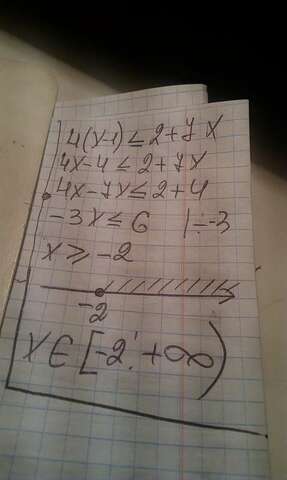 4(x-1) ≤ 2+7x
4x-4 ≤ 2+7x
4x-7x ≤ 2+4
-3x ≤ 6 |÷-3
x ≥ -2
-2
x ∈ [-2; +∞)